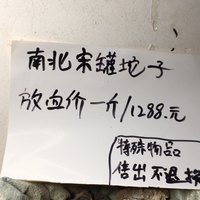 南北宋罐坨子
放血价一斤/1288.元
特殊物品
售出不退换